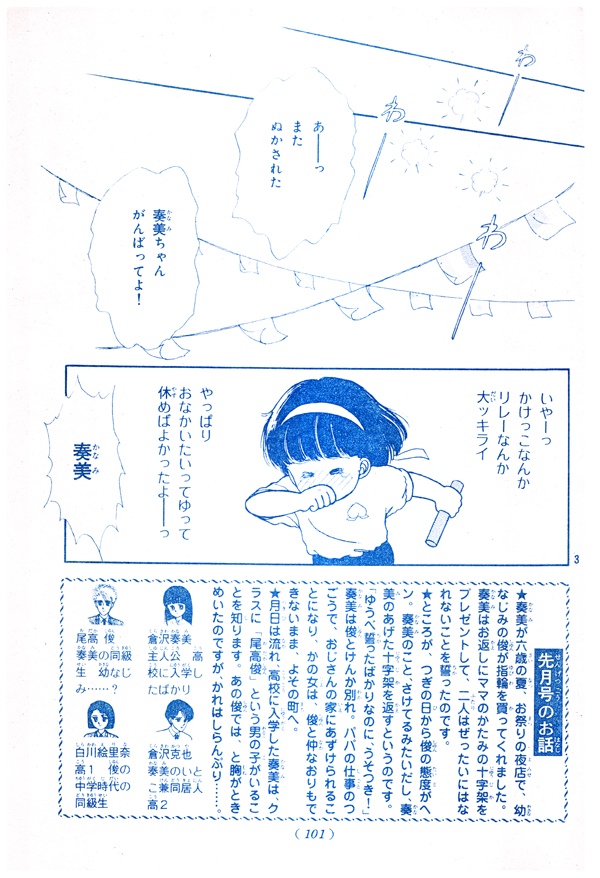 わ
わ
わ
あーーっ
また
ぬかされた
奏美ちゃん
がんばってよ！
いやーっ
かけっこなんか
リレーなんか
大ッキライ
やっぱり
おなかいたいってゆって
休めばよかったよーーっ
奏美
3
先月号のお話
★奏美が六歳の夏、お祭りの夜店で、幼
なじみの俊が指輪を買ってくれました。
奏美はお返しにママのかたみの十字架を
プレゼントして、二人はぜったいにはな
れないことを誓ったのです。
★ところが、つぎの日から俊の態度がへ
ン。奏美のこと、さけてるみたいだし、奏
美のあげた十字架を返すというのです。
「ゆうべ誓ったばかりなのに、うそつき！」
奏美は俊とけんか別れ。パパの仕事のつ
ごうで、おじさんの家にあずけられるこ
とになり、かの女は、俊と仲なおりもで
きないまま、よその町へ。
★月日は流れ、高校に入学した奏美は、ク
ラスに「尾高俊」という男の子がいるこ
とを知ります。あの俊では、と胸がとき
めいたのですが、かれはしらんぷり……。
倉沢奏美
主人公　高
校に入学し
たばかり
尾高　俊
奏美の同級
生　幼なじ
み……？
倉沢克也
奏美のいと
こ兼同居人
高2
白川絵里奈
高1　俊の
中学時代の
同級生
（101）